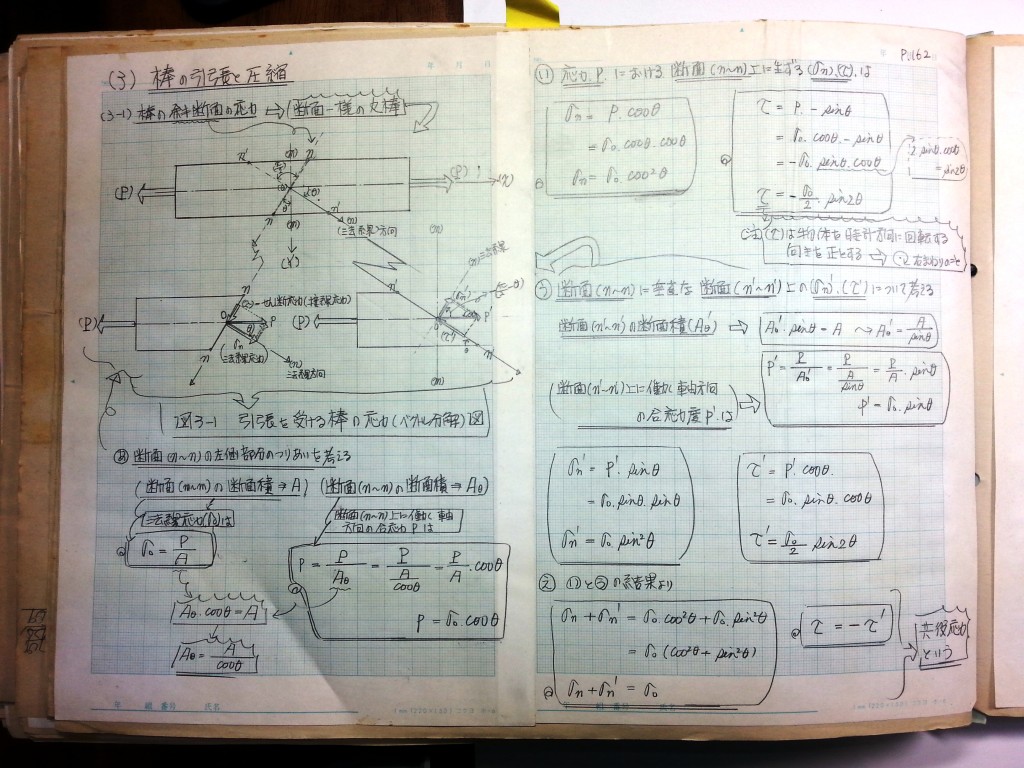 (3) 棒の引張と圧縮
(3-1) 棒の傾斜断面の応力 → 断面一様の丸棒
n' (m) n
(P) (P) (x)
n (m) n' (n)
(法線)方向
(Y)
(m)
n'
(P) O P (P) P'
σn (n)
(法線応力) 法線方向
n n
(m)
図3-1 引張を受ける棒の応力(ベクトル分解)図
あ 断面(n~n)の左側部分のつりあいを考える
(断面(m~m)の断面積⇒A) (断面(n~n)の断面積⇒Aθ)
法線応力(σ0)は
断面(n~n)上に働く軸方向の合応力 P は
σ0 = P/A
P = P/Aθ = P/(A/cosθ) = P/A · cosθ
P = σ0 cosθ
Aθ · cosθ = A
Aθ = A/cosθ
P.162
い 応力 P. における 断面(n~n)上に生ずる(σn).(τ).は
σn = P. cosθ
= σ0. cosθ. cosθ
σn = σ0. cos²θ
τ = P. - sinθ
= σ0. cosθ. - sinθ
= -σ0. sinθ. cosθ
2 sinθ. cosθ
= sin2θ
τ = -σ0/2. sin2θ
(注) (τ)は物体を時計方向に回転する
向きを正とする ⇒ 右まわりのこと
う 断面(n~n)に垂直な 断面(n'~n')上の(σn').(τ')について考える
断面(n'~n')の断面積(Aθ') ⇒ Aθ'. sinθ = A → Aθ' = A/sinθ
P' = P/Aθ' = P/(A/sinθ) = P/A. sinθ
P' = σ0. sinθ
断面(n'~n')上に働く軸方向
の合応力度 P'. は
σn' = P'. sinθ
= σ0. sinθ. sinθ
σn' = σ0. sin²θ
τ' = P'. cosθ.
= σ0. sinθ. cosθ
τ' = σ0/2 sin2θ
え いとうの結果より
σn + σn' = σ0. cos²θ + σ0. sin²θ
= σ0 (cos²θ + sin²θ)
σn + σn' = σ0
τ = -τ'
共役応力
という
年 組 番号 氏名